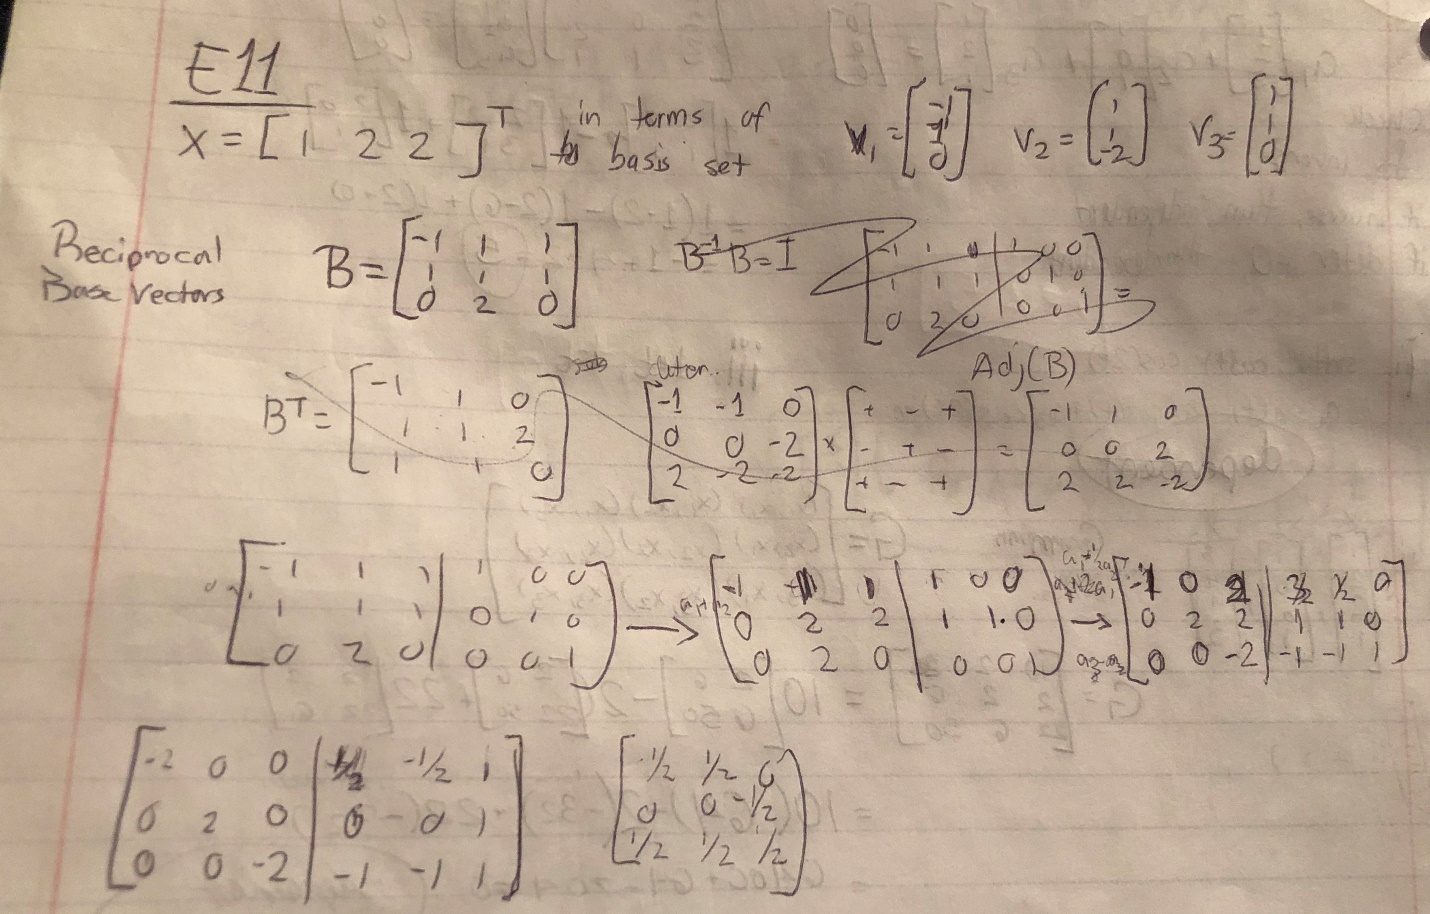 E11
X = [ 1 2 2 ]ᵀ in terms of basis set v₁ = [-1 1 0] V₂ = [1 1 -2] V₃ = [1 1 0]
Reciprocal Base Vectors
B = [-1 1 1
1 1 1
0 2 0]
B⁻¹B = I
[-1 1 0 | 1 0 0
1 1 1 | 0 1 0
0 2 0 | 0 0 1] =
Bᵀ = [-1 1 0
1 1 2
1 1 0]
[-1 -1 0
0 0 -2
2 -2 -2] × [+ - +
- + -
+ - +] = Adj(B)
[-1 1 0
0 0 2
2 2 -2]
[-1 1 1 | 1 0 0
1 1 1 | 0 1 0
0 2 0 | 0 0 1] →
[-1 1 1 | 1 0 0
0 2 2 | 1 1 0
0 2 0 | 0 0 1] →
[-1 0 | ½ 0
0 2 2 | 1 1 0
0 0 -2 | -1 -1 1]
[-2 0 0 | -1/2 1
0 2 0 | 0 0 1
0 0 -2 | -1 -1 1]
[-1/2 1/2 0
0 0 -1/2
1/2 1/2 1/2]